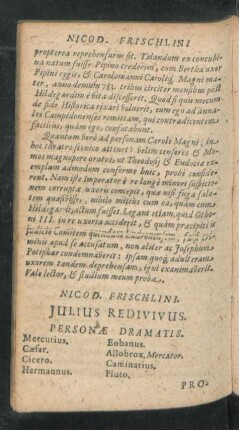 NICOD. FRISCHLINI
propterea reprehensurus sit. Talandum ex concubi-
na natum fuisse Pipino crederim, cum Bertha uxor
Pipini regis & Carolomanni Caroliq́ Magni ma-
ter, anno demum 783. tribus circiter mensibus post
Hildegardim è vita discesserit. Quod si quis mecum
de fide Historica rixari voluerit, eum ego ad anna-
les Campidonenses remittam, qui contradicentem
facilius, quàm ego, confutabunt.
Quantum verò ad personam Caroli Magni, in
hoc theatro scenico attinet: velim censeris & Mo-
mor magnopere oratos, ut Theodosij & Eudoxiæ ex-
emplum admodum conforme huic, probè conside-
rent. Nam iste Imperator è re longè minore suspicio-
nem corruptæ uxoris concepit, quæ nisi fuga salu-
tem quæsivisset, nihilo mitius cum ea, quàm cum
Hildegardi actum fuisset. Legant etiam, quid Otho-
ni III. in re uxoria acciderit, & quàm præcipiti
judicio Comitem quendam
minis apud se accusatum, non aliter ac Josephum
Potiphar condemnaverit: ipsam quoq́ adulteram
uxorem tandem deprehensam, igni exanimaverit.
Vale lector, & studium meum proba.
NICOD. FRISCHLINI.
JULIUS REDIVIVUS.
PERSONÆ DRAMATIS.
Mercurius. Eobanus.
Cæsar. Allobrox, Mercator.
Cicero. Caminarius.
Hermannus. Pluto.
PRO-